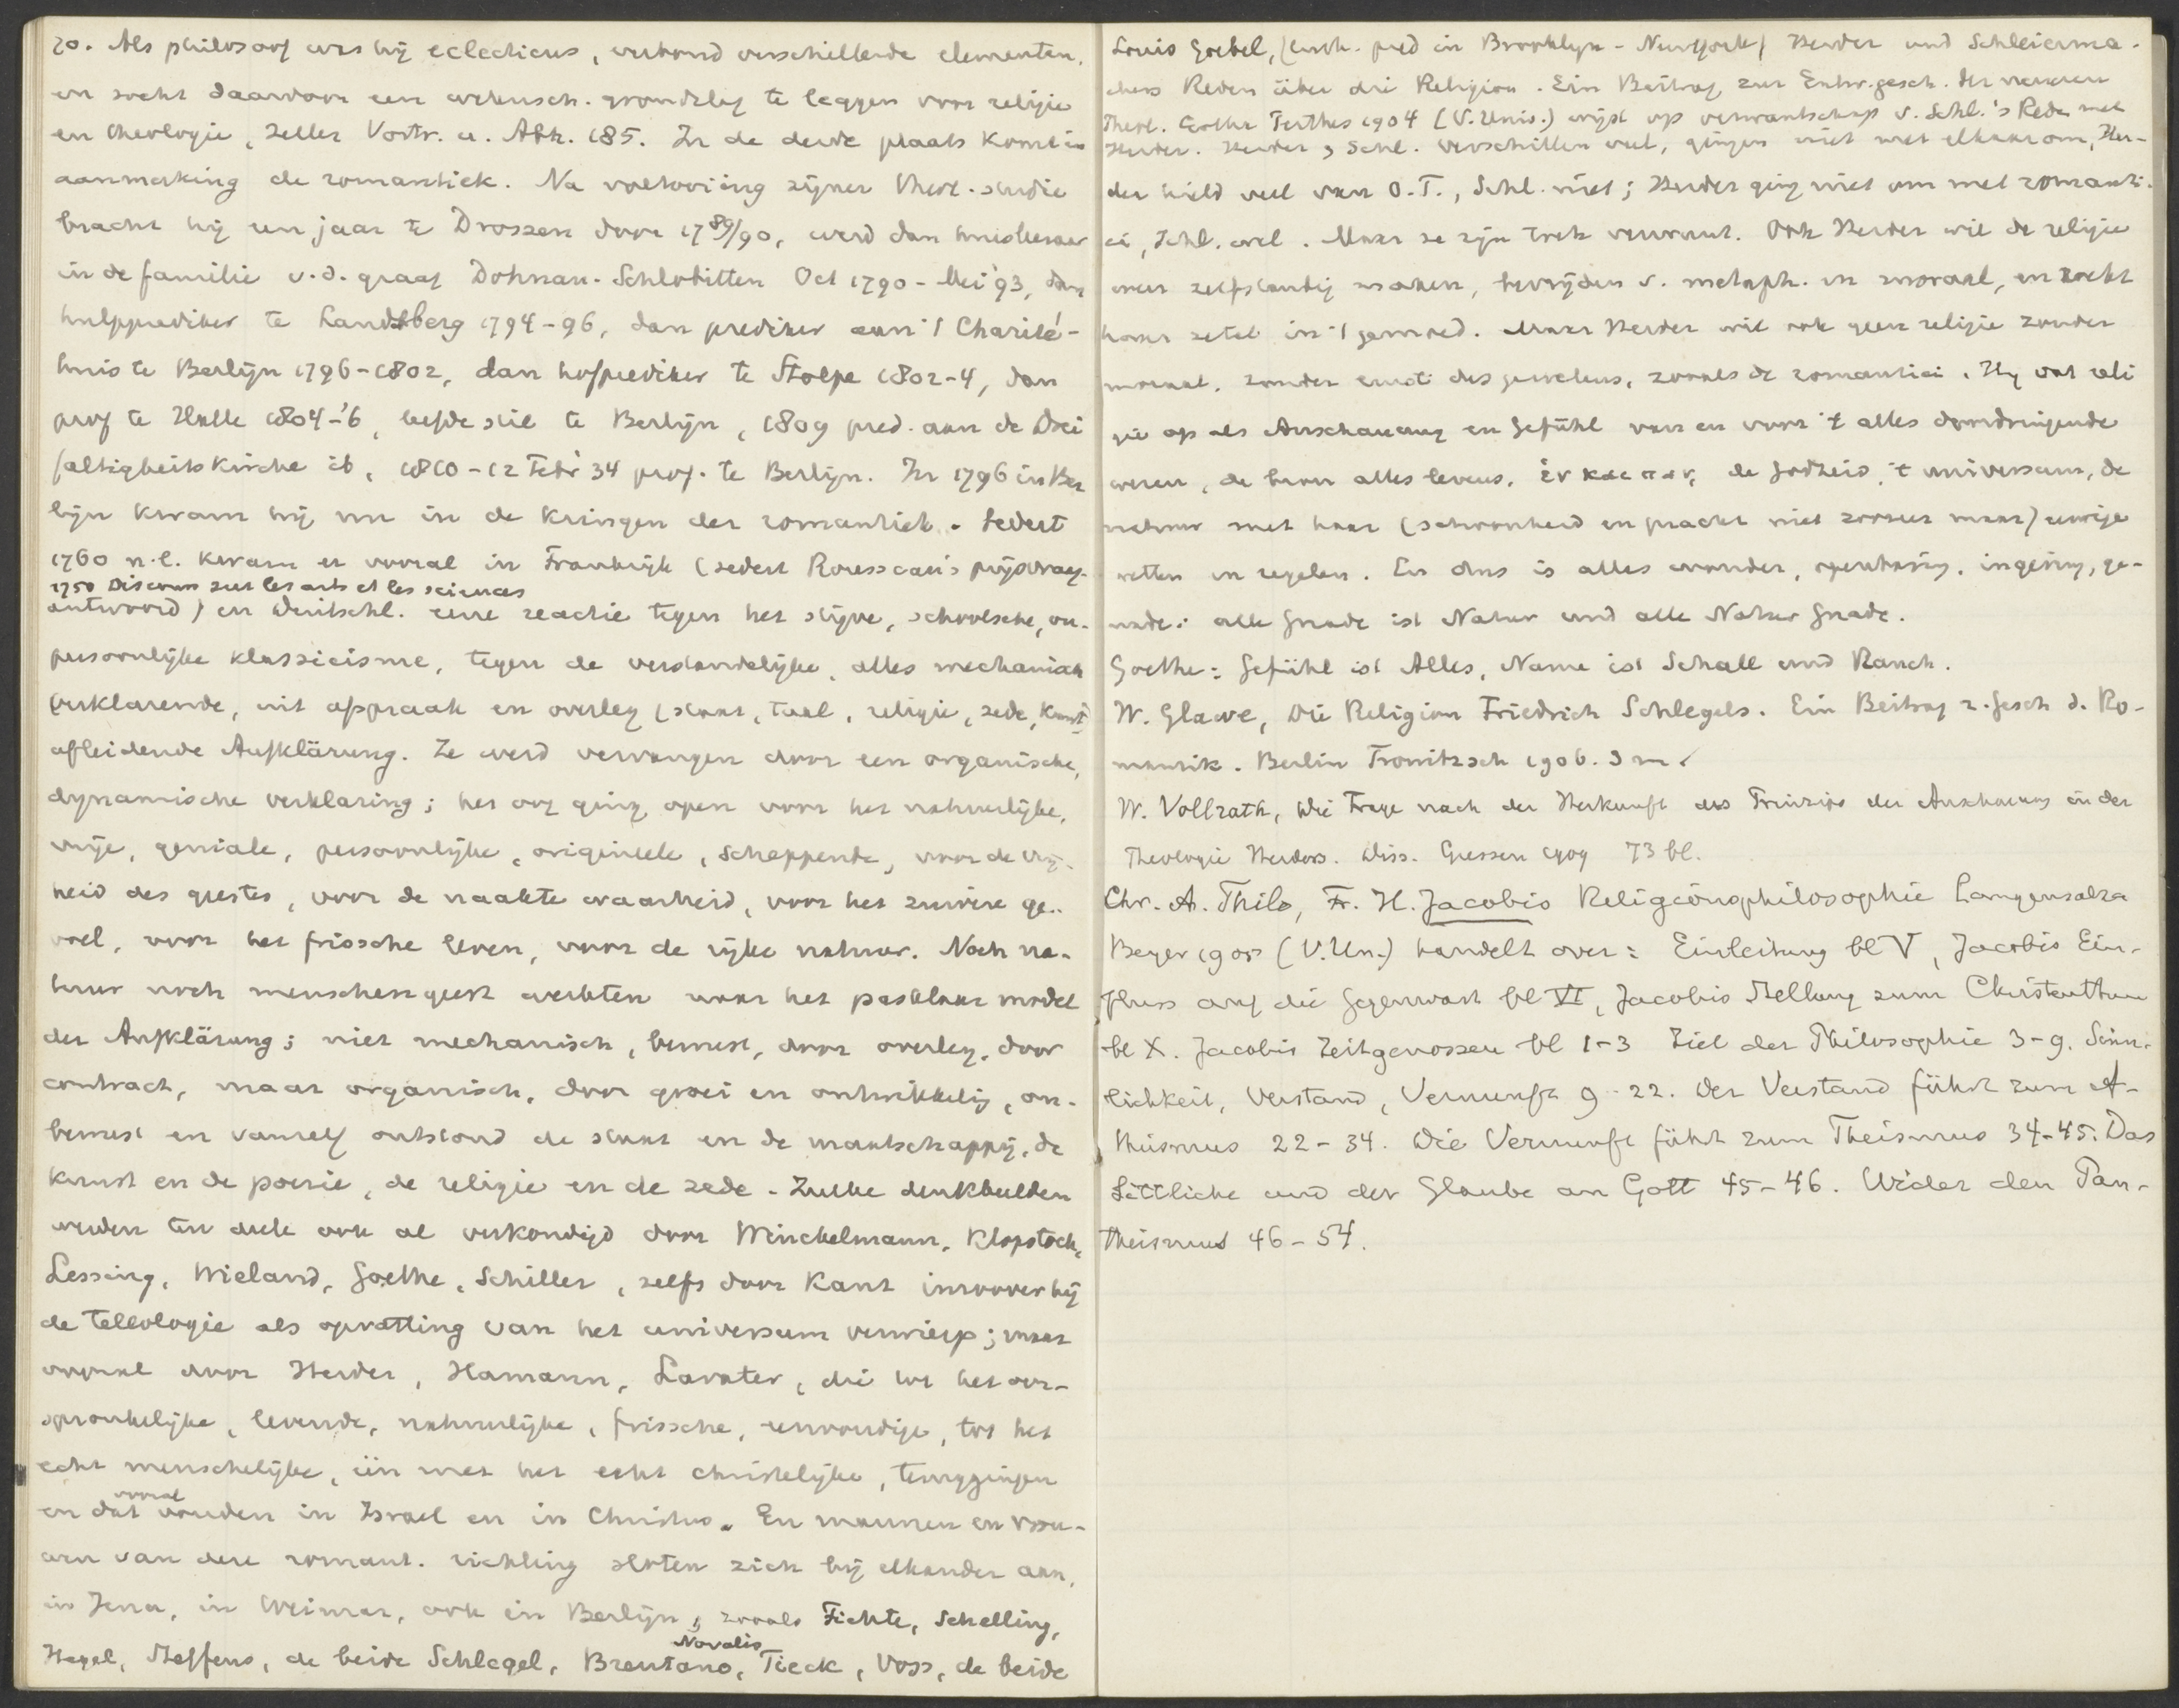 20. Als philosoof was hij eclecticus, verbond verschillende elementen,
en zocht daardoor een wetensch. grondslag te leggen voor religie
en theologie, Zeller Vortr. u. Abh. 185. In de derde plaats komt in
aanmerking de romantiek. Na voltooiing zijner theol. studie
bracht hij een jaar te Drossen door 1789/90, werd dan huisleeraar
in de familie v.d. graaf Dohnau-Schlobitten Oct 1790 - Mei '93, dan
hulpprediker te Landsberg 1794-96, dan prediker aan 't Charité-
huis te Berlijn 1796-1802, dan hofprediker te Stolpe 1802-4, dan
prof te Halle 1804-'6, leefde stil te Berlijn, 1809 pred. aan de Drei
faltigkeitskirche ib, 1810-12 Febr 34 prof. te Berlijn. In 1796 in Ber
lijn kwam hij nu in de kringen der romantiek. Sedert
1760 n.l. kwam er vooral in Frankrijk (sedert Rousseau's prijsvraag-
1750 Discours sur les arts et les sciences
antwoord) en Duitschl. eene reactie tegen het stijve, schoolsche, on-
persoonlijke klassicisme, tegen de verstandelijke, alles mechanisch
verklarende, uit afspraak en overleg (staat, taal, religie, zede, kunst)
afleidende Aufklärung. Ze werd vervangen door een organische,
dynamische verklaring; het oog ging open voor het natuurlijke,
vrije, geniale, persoonlijke, origineele, scheppende, voor de vrij-
heid des geestes, voor de naakte waarheid, voor het zuivere ge-
voel, voor het frissche leven, voor de rijke natuur. Noch na-
tuur noch menschengeest werkten naar het pasklaar model
der Aufklärung; niet mechanisch, bewust, door overleg, door
contract, maar organisch, door groei en ontwikkelig, on-
bewust en vanzelf ontstond de staat en de maatschappij, de
kunst en de poezie, de religie en de zede. Zulke denkbeelden
werden ten deele ook al verkondigd door Winckelmann, Klopstock,
Lessing, Wieland, Goethe, Schiller, zelfs door Kant inzoover hij
de teleologie als opvatting van het universum verwierp; maar
vooral door Herder, Hamann, Lavater, die tot het oor-
spronkelijke, levende, natuurlijke, frissche, eenvoudige, tot het
echt menschelijke, één met het echt christelijke, teruggingen
en dat vooral vonden in Israel en in Christus. En mannen en vrou-
wen van deze romant. richting sloten zich bij elkander aan,
in Jena, in Weimar, ook in Berlijn, zooals Fichte, Schelling,
Hegel, Steffens, de beide Schlegel, Brentano, Novalis, Tieck, Voss, de beide
Louis Goebel, (luth. pred in Brooklyn - Newyork) Herder und Schleierma-
chers Reden über die Religion. Ein Beitrag zur Entw.gesch. der neueren
Theol. Gotha Perthes 1904 (V. Univ.) wijst op verwantschap v. Schl.'s Rede met
Herder. Herder & Schl. verschillen veel, gingen niet met elkaar om, Her-
der hield veel van O.T., Schl. niet; Herder ging niet om met romanti-
ci, Schl. wel. Maar ze zijn toch verwant. Ook Herder wil de religie
weer zelfstandig maken, bevrijden v. metaph. en moraal, en zoekt
haar zetel in 't gemoed. Maar Herder wil ook geen religie zonder
moraal, zonder ernst des gewetens, zooals de romantici. Hij vat reli
gie op als Anschauung en Gefühl van en voor 't alles doordringende
wezen, de bron alles levens, ἑν και παν, de godheid, 't universum, de
natuur met haar (schoonheid en pracht niet zoozeer maar) eeuwige
wetten en regelen. En dus is alles wonder, openbaring, ingeving, ge-
nade: alle Gnade ist Natur und alle Natur Gnade.
Goethe: Gefühl ist Alles, Name ist Schall und Rauch.
W. Glawe, Die Religion Friedrich Schlegels. Ein Beitrag z. Gesch d. Ro-
mantik. Berlin Trowitzsch 1906. 3 m
W. Vollrath, Die Frage nach der Herkunft des Prinzips der Anschauung in der
Theologie Herders. Diss. Giessen 1909 73 bl.
Chr. A. Thilo, Fr. H. Jacobis Religionsphilosophie Langensalza
Beyer 1905 (V.Un.) handelt over: Einleitung bl V, Jacobis Ein-
fluss auf die Gegenwart bl VI, Jacobis Stellung zum Christenthum
bl X. Jacobis Zeitgenossen bl 1-3 Ziel der Philosophie 3-9. Sinn-
lichkeit, Verstand, Vernunft 9-22. Der Verstand führt zum A-
theismus 22-34. Die Vernunft führt zum Theismus 34-45. Das
Sittliche und der Glaube an Gott 45-46. Wider den Pan-
theismus 46-54.